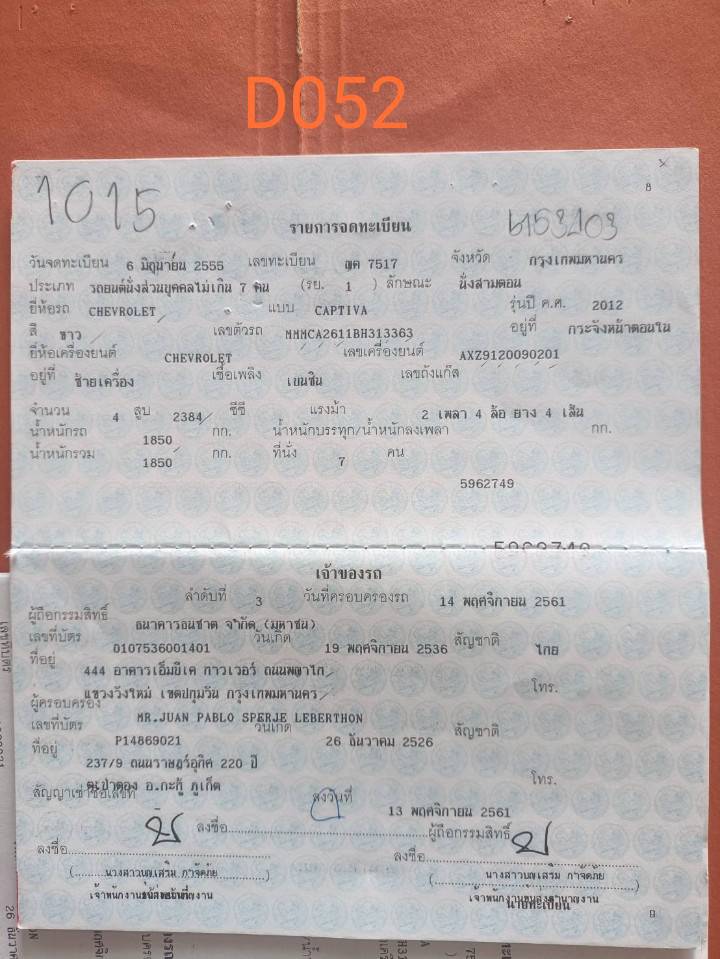 D052
1015
8
รายการจดทะเบียน
วันจดทะเบียน 6 มิถุนายน 2555 เลขทะเบียน ฎค 7517 จังหวัด กรุงเทพมหานคร
ประเภท รถยนต์นั่งส่วนบุคคลไม่เกิน 7 คน (รย. 1 ) ลักษณะ นั่งสามตอน
ยี่ห้อรถ CHEVROLET แบบ CAPTIVA รุ่นปี ค.ศ. 2012
สี ขาว เลขตัวรถ MMMCA2611BH313363 อยู่ที่ กระจังหน้าตอนใน
ยี่ห้อเครื่องยนต์ CHEVROLET เลขเครื่องยนต์ AXZ9120090201
อยู่ที่ ซ้ายเครื่อง เชื้อเพลิง เบนซิน เลขถังแก๊ส
จำนวน 4 สูบ 2384 ซีซี แรงม้า 2 เพลา 4 ล้อ ยาง 4 เส้น
น้ำหนักรถ 1850 กก. น้ำหนักบรรทุก/น้ำหนักลงเพลา กก.
น้ำหนักรวม 1850 กก. ที่นั่ง 7 คน
5962749
เจ้าของรถ
ลำดับที่ 3 วันที่ครอบครองรถ 14 พฤศจิกายน 2561
ผู้ถือกรรมสิทธิ์ ธนาคารธนชาต จำกัด (มหาชน)
เลขที่บัตร 0107536001401 วันเกิด 19 พฤศจิกายน 2536 สัญชาติ ไทย
ที่อยู่ 444 อาคารเอ็มบีเค ทาวเวอร์ ถนนพญาไท
แขวงวังใหม่ เขตปทุมวัน กรุงเทพมหานคร โทร.
ผู้ครอบครอง MR.JUAN PABLO SPERJE LEBERTHON
เลขที่บัตร P14869021 วันเกิด 26 ธันวาคม 2526 สัญชาติ
ที่อยู่ 237/9 ถนนราษฎร์อุทิศ 220 ปี
ต.ป่าตอง อ.กะทู้ ภูเก็ต โทร.
สัญญาเช่าซื้อเลขที่ ลงวันที่ 13 พฤศจิกายน 2561
ลงชื่อ ผู้ถือกรรมสิทธิ์
ลงชื่อ ลงชื่อ
(นางสาวบุญเสริม กำจัดภัย) (นางสาวบุญเสริม กำจัดภัย)
นายทะเบียน